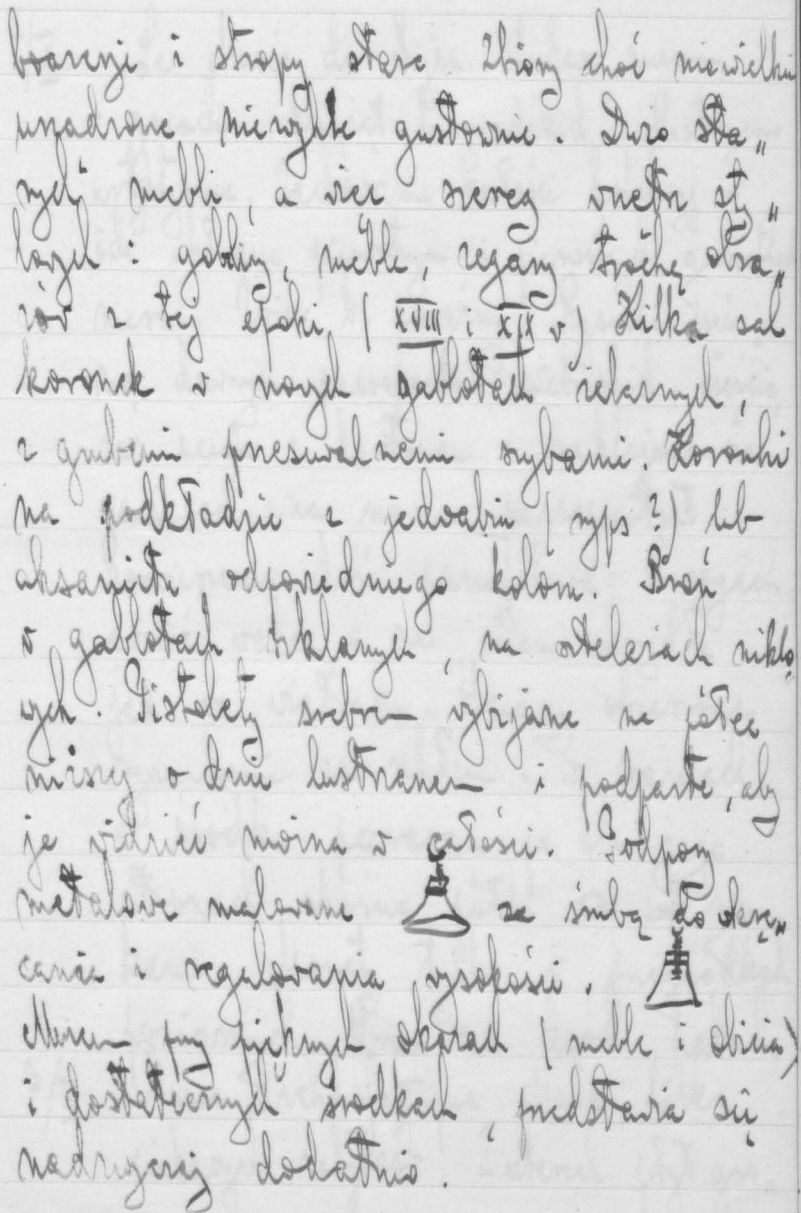 boazerje i stropy stare. Zbiory choć niewielkie
urządzone niezwykle gustownie. Dużo sta„
rych mebli, a więc szereg wnętrz sty„
lowych i gobeliny, meble, zegary trochę obra„
zów z tej epoki (XVIII i XIX w) Kilka sal
koronek w nowych gablotach żelaznych,
z grubemi przesuwalnemi szybami. Koronki
na podkładzie z jedwabiu (ryps?) lub
aksamitu odpowiedniego koloru. Broń
w gablotach szklanych, na stelażach niklo„
wych. Pistolety srebrem wybijane na półce
niższej o dnie lustrzanem i podparte, aby
je widzieć można w całości. Podpory
metalowe malowane ze śrubą do okrę„
cania i regulowania wysokości.
Muzeum przy pięknych okazach (meble i obicia)
i dostatecznych środkach, przedstawia się
nadzwyczaj dodatnio.